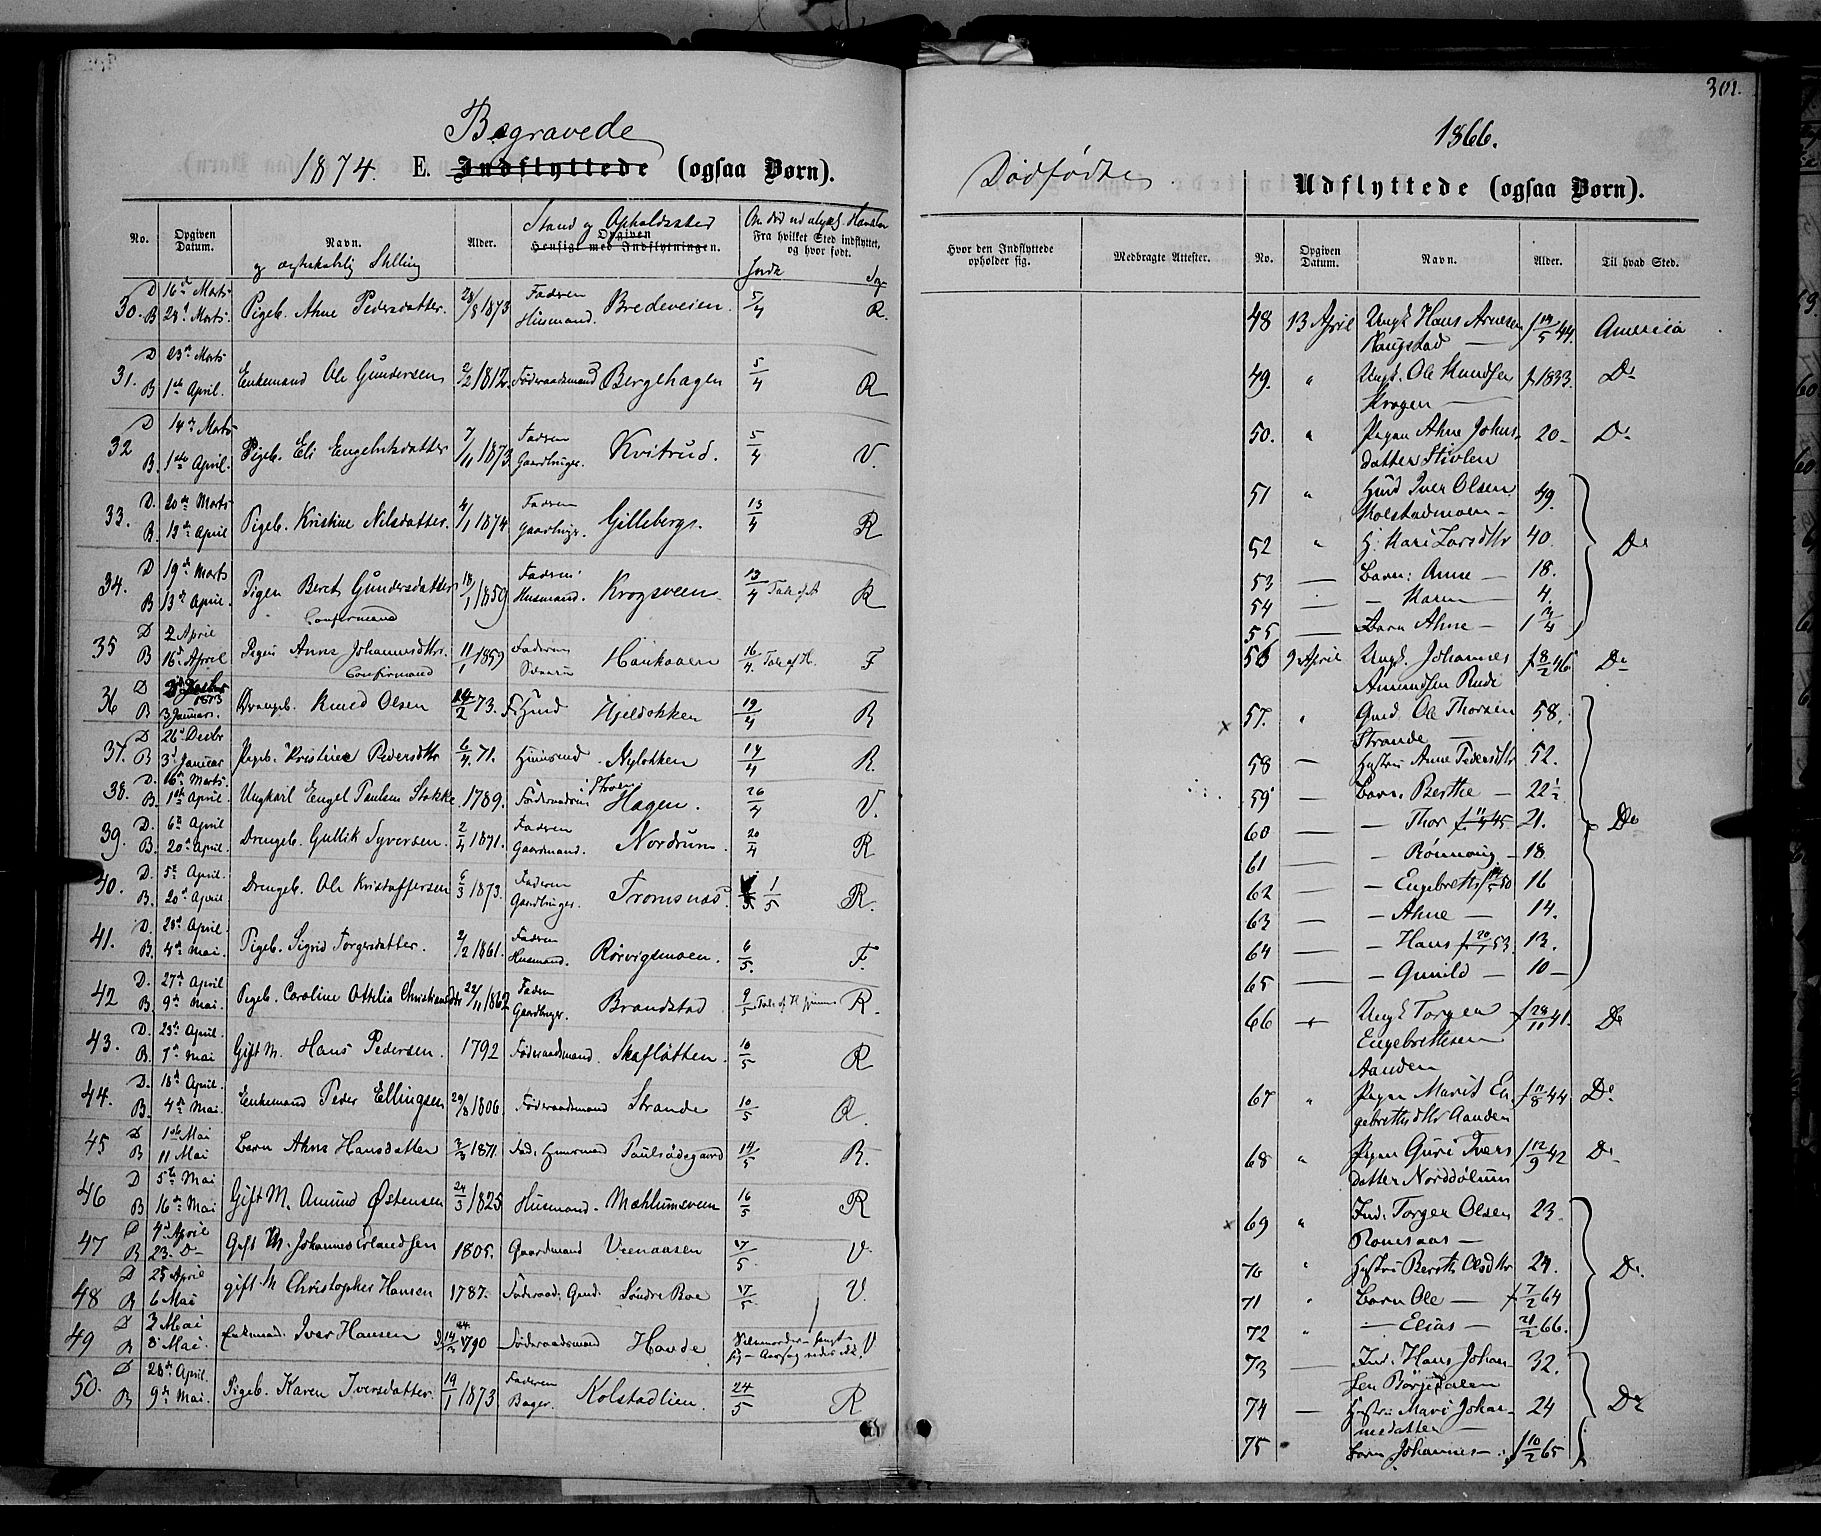 301.
Begravede
1874. E. Indflyttede (ogsaa Børn).
No.
Opgiven Datum.
Navn.
og ægteskabelig Stilling
Alder.
Stand og Opholdssted
Opgiven
Hensigt med Indflytningen.
Om død
Fra hvilket Sted indflyttet,
og hvor født.
30. D 16de Marts B 28d Marts. Pigeb. Ahne Pedersdatter. 28/8 1873 Faderen Husmand. Bredeveien. 5/4 R.
31. D 23de Marts B 1ste April. Enkemand Ole Gundersen 2/2 1812. Føderaadsmand Bergehagen 5/4 R
32 D 14de Marts B. 1ste April. Pigeb. Eli Engebretsdatter 7/11 1873. Faderen Gaardbruger. Kvitrud. 5/4 V.
33. D. 20de Marts B. 13de April Pigeb. Kristine Nilsdatter. 4/1 1874 Faderen Gaardbruger. Gilleberg. 13/4 R
34. D 19de Marts B 13de April. Pigen Berit Gundersdatter Confirmand 18/1 1859 Faderen Husmand. Krogsveen 13/4 R
35 D 2 April B 16de April Pigen Anne Johannesdtr. Confirmand 11/1 1859 Faderen Haukaaen 16/4. Tale af H. F
36 D 1873 B 3 Januar. Drengeb. Knud Olsen 24/2 73. Hjeldokken 19/4 R
37. D 26d Decbr B 3d Januar Pigeb. Kristine Pedersdtr 6/4. 71. Huusmd Nylokken 14/4 R.
38. D. 16de Marts B. 1ste April. Ungkarl Engel Paulsen Stokke. 1789. Hagen. 26/4 V.
39. D. 6te April B. 20de April. Drengeb. Gullik Syversen. 2/4 1871. Faderen Gaardmand. Nordrum. 20/4 R
40. D. 5te April. B. 20de April Drengeb. Ole Kristoffersen 6/3 1873. Faderen Gaardbruger. Tromsnæs. 1/5 R.
41. D. 20de April. B. 4de Mai. Pigeb. Sigrid Torgersdatter. 2/2 1861. Faderen Husmand. Rørvigsmoen. 6/5. F.
42 D. 27de April B. 9de Mai. Pigeb. Caroline Ottilia Christiansdtr 22/11 1862 Faderen Gaardbruger. Brandstad 9/5 Tale af H R.
43. D. 23de April. B. 7de Mai Gift M. Hans Pedersen. 1792 Føderaadsmand. Skafløtten. 10/5 R
44. D. 18de April. B. 4de Mai. Enkemand Peder Ellingsen 29/8 1806. Føderaadsmand Strande 10/5 R.
45 D 1ste Mai B 11 Mai Barn Ahne Hansdatter 3/3 1871. Fad. Huusmand Paulsødegaard 14/5 R.
46 D 5te Mai B 16de Mai Gift M. Amund Østensen 24/3 1825 Husmand. Mæhlumsveen 16/5 R
47 D 4de April B 23. D– Gift M. Johannes Erlandsen 1805. Gaardmand Veenaasen 17/5. V.
48 D 25 April B 6 Mai gift M Christopher Hansen 1787. Føderaads Gmd. Søndre Roe 17/5. V.
49 D 3 Mai B 8 Mai. Enkemd. Iver Hansen 1790 Føderaadsmand Hovde V
50. D 28de April. B 9de Mai. Pigeb. Karen Iversdatter. 19/1 1873. Faderen Bager. Kolstadlien. 24/5 R.
Dødfødte
1866.
Udflyttede (ogsaa Børn).
Hvor den Indflyttede opholder sig.
Medbragte Attester.
No.
Opgiven Datum.
Navn.
Alder.
Til hvad Sted.
48 13 April Ungk. Hans Arnesen Haugstad f 19/5 44. America
49. " Ungk. Ole Knudsen Krogen f. 1833. Do
50. " Pigen Ahne Johnsdatter Stivlen 20– Do
51 " Huusmd Iver Olsen Kolstadmoen– 49.
52 " H. Mari Larsdtr 40.
53 — Barn: Anne – 18. Do
54 — – Karen – 4.
55 — Barn Ahne – 1 3/4
56 9 April Ungk. Johannes Amundsen Rudi f 8/2 46 Do
57. " Gmd. Ole Thorsen Strande 58.
58 — Hustru Anne Pedersdtr 52.
59 — Barn. Berthe – 22 1/2
60 — – Thor 21. Do
61 — – Rønnaug. – 18
62 — – Engebreth 16
63 — – Ahne – 14.
64 — – Hans f 20/7 53 13.
65 — – Gunild – 10–
66 Ungk Torgen Engebrethsen Aanden f 28/11 41. Do
67 " Pigen Marit Engebrethsdtr Aanden f 11/8 44 Do
68 " Pigen Guri Iversdatter Norddølum f 12/9 42 Do
69 " Ind. Torger Olsen Romsaas – 23.
70 " Hustru Berthe Olsdtr 24. Do
71 " Barn Ole – f 7/2 64
72 " – Elias – 21/2 66.
73 — Ind. Hans Johansen Børjedalen 32.
74 — Hustru Mari Johannesdatter – 24 Do
75 Barn Johannes – f 10/2 65